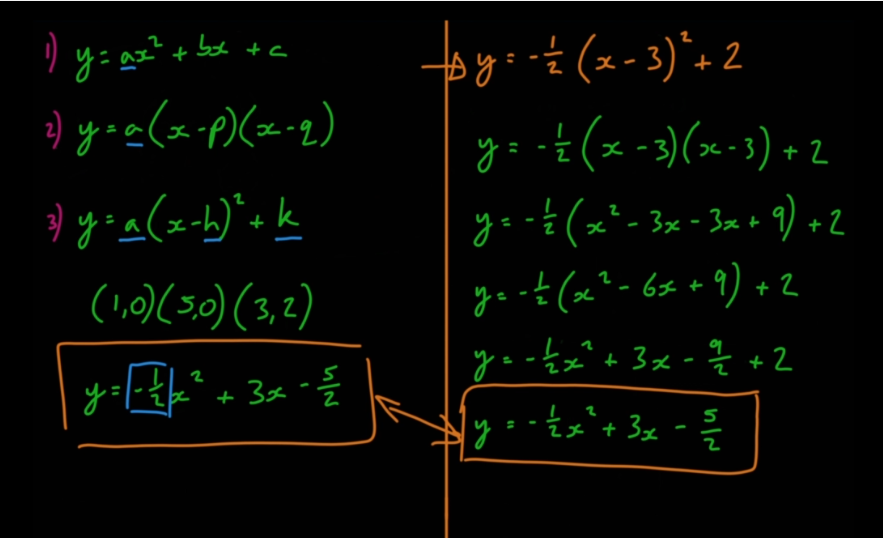 1) y = ax² + bx + c
2) y = a(x-p)(x-q)
3) y = a(x-h)² + k
(1,0)(5,0)(3,2)
y = -1/2x² + 3x - 5/2
y = -1/2(x-3)² + 2
y = -1/2(x-3)(x-3) + 2
y = -1/2(x² - 3x - 3x + 9) + 2
y = -1/2(x² - 6x + 9) + 2
y = -1/2x² + 3x - 9/2 + 2
y = -1/2x² + 3x - 5/2